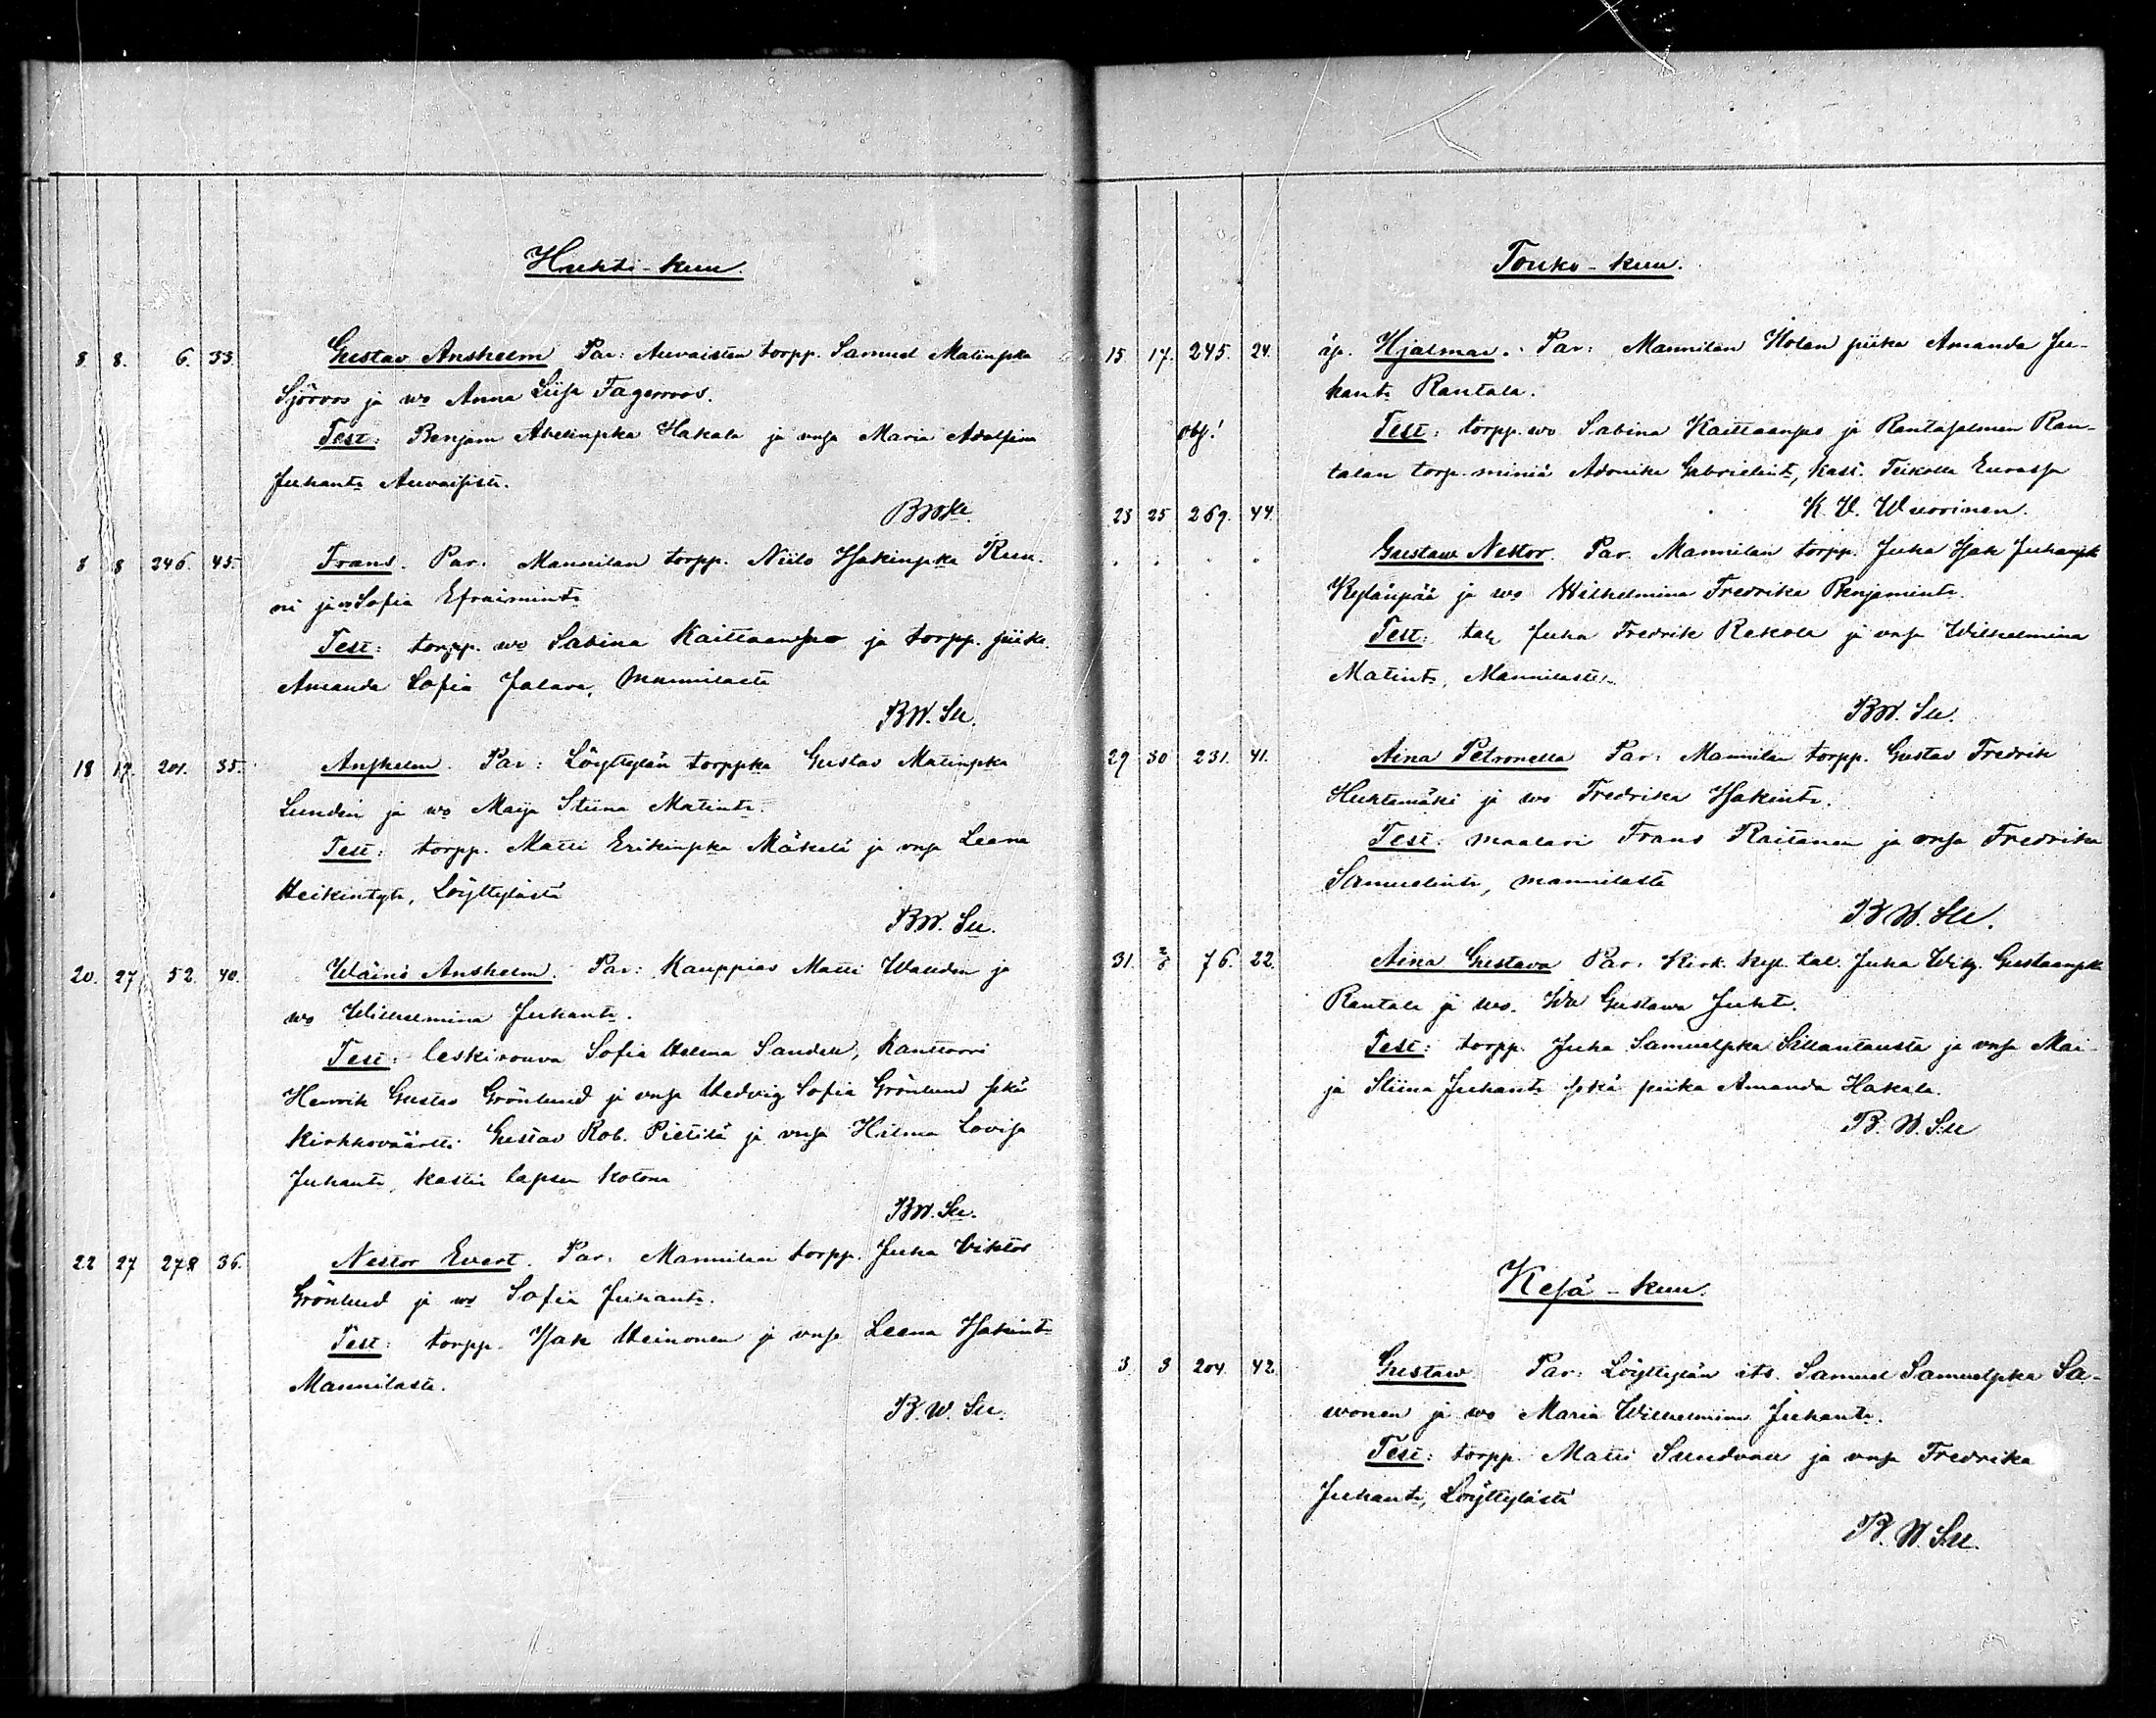 Huhti-kuu.
8. 8. 6. 33. Gustav Anshelm Par: Auvaisten torpp. Samuel Matinpka
Sjöroos ja wo Anna Liisa Fagerroos.
Test: Benjam Abelinpka Hakala ja vmsa Maria Adolfina
Juhantr Auvaisista.
8 8 246. 45. Frans. Par. Mannilan torpp. Niilo Isakinpka Ruu-
ni ja wo Sofia Efraimintr
Test: torpp. wo Sabina Kaittaanpää ja torpp. piika
Amanda Sofia Jalava, Mannilasta
BW. Su.
18 19. 201. 35. Anshelm. Par: Löyttylän torppka Gustav Matinpka
Lundén ja wo Maija Stiina Matintr.
Test: torpp. Matti Erikinpka Mäkelä ja vmsa Leena
Heikintytr, Löyttylästä
BW. Su.
20. 27 52. 40. Wäinö Anshelm. Par: Kauppias Matti Wanden ja
wo Wilhelmina Juhantr.
Test: leskirouva Sofia Helena Sandell, Kanttoori
Henrik Gustav Grönlund ja vmsa Hedvig Sofia Grönlund sekä
Kirkkoväärtti Gustav Rob. Pietilä ja vmsa Hilma Lovisa
Juhantr, kastin lapsen kotona
BW. Su.
22 27 278 36. Nestor Evert. Par. Mannilan torpp. Juha Viktor
Grönlund ja wo Sofia Juhantr.
Test: torpp. Isak Heinonen ja vmsa Leena Isakintr
Mannilasta.
B. W. Su.
Touko-kuu.
15. 17. 245. 24. äp. Hjalmar. Par: Mannilan Kolan piika Amanda Ju-
hantr Rantala.
obs! Test: torpp. wo Sabina Kaittaanpää ja Rantasalmen Ran-
talan torp. miniä Adonika Gabrielintr, kast. Teikolla Eurassa
K. V. Wuorinen.
23 25 269. 44. Gustaw Nestor. Par. Mannilan torpp. Juha Isak Juhanpk
Kylänpää ja wo Wilhelmina Fredrika Benjamintr.
Test: tal. Juha Fredrik Rekola ja vmsa Wilhelmina
Matintr, Mannilasta.
BW. Su.
29 30 231. 41. Aina Petronella Par: Mannilan torpp. Gustav Fredrik
Huhtamäki ja wo Fredrika Isakintr.
Test: maalari Frans Raitanen ja vmsa Fredrika
Samuelintr, Mannilasta
B W. Su.
31. 76. 22. Aina Gustava Par. Kirk. kyl. tal. Juha Gustaanpk
Rantala ja wo. Ida Gustava Juht.
Test: torpp. Juha Samuelpka Sillantausta ja vmsa Mai-
ja Stiina Juhantr sekä piika Amanda Hakala.
B. W. Su
Kesä-kuu.
3. 3 204. 42. Gustaw Par: Löyttylän its. Samuel Samuelpka Sa-
wonen ja wo Maria Wilhelmina Juhantr.
Test: torpp. Matti Sundvall ja vmsa Fredrika
Juhantr, Löyttylästä
B. W. Su.